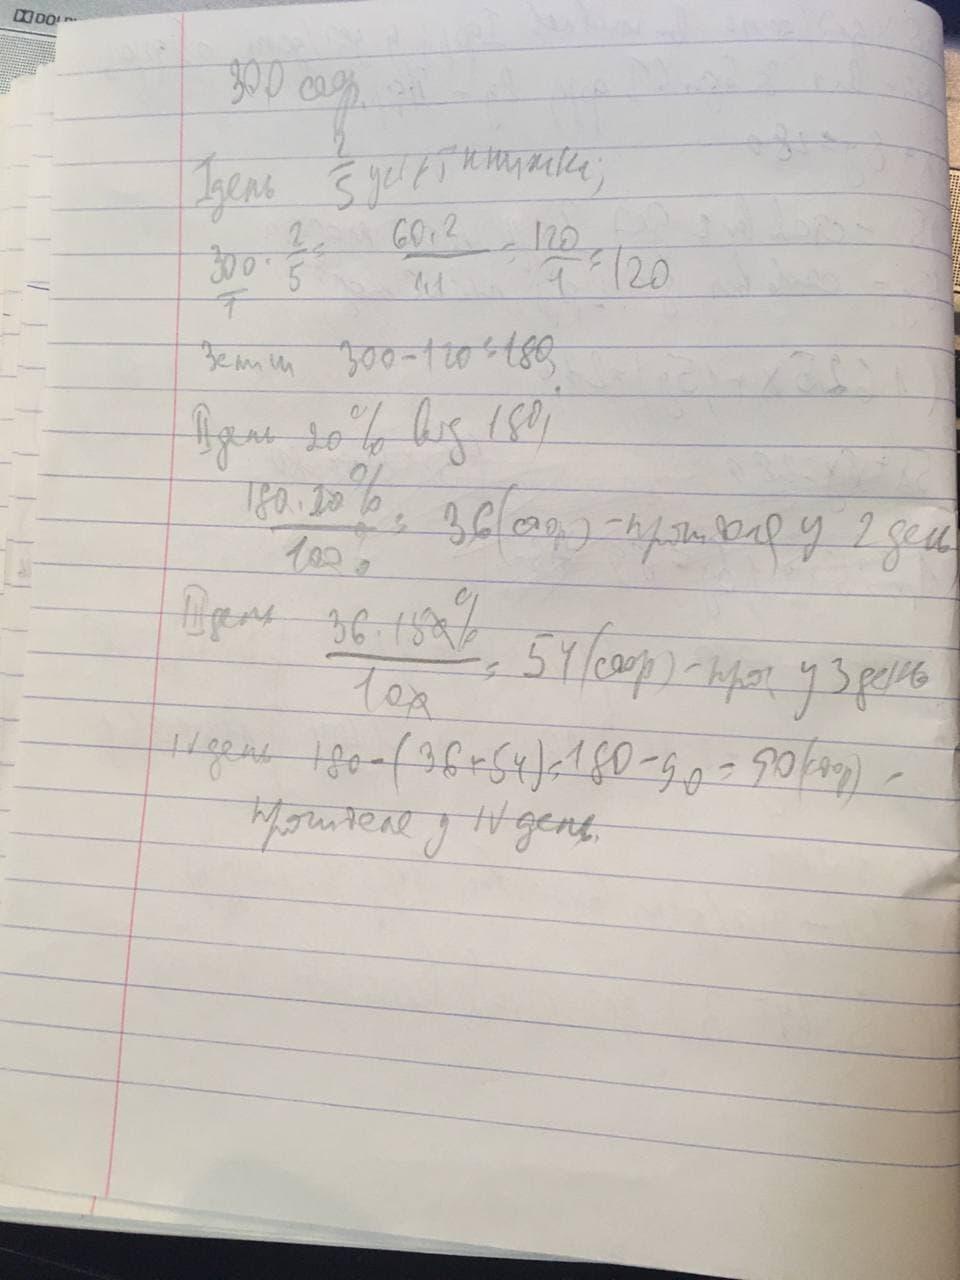 DOL
300 стор.
I день 2/5 усієї книжки;
300/1 · 2/5 = 60·2/1·1 = 120/1 = 120
300-120=180,
II день 20% від 180,
180·20%/100% = 36(стор) - у 2 день
III день 36·150%/100 = 54(стор) - у 3 день
IV день 180-(36+54)=180-90=90(стор) -
у IV день.